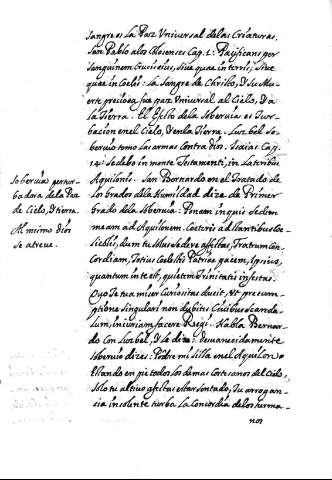 sangre es La Paz Vniversal de las Criaturas.
San Pablo a los Cap. 1: Pacificans per
sanguinem Crucis eius, sive quae in terris, sive
quae in Coelis. La Sangre de Christo, y su Mu-
erte preciosa fue paz Vniversal al Cielo, y a
la tierra. El Efecto de la Sobervia es Tur-
bacion en el Cielo, y en la tierra. Luzbel so-
bervio tomo las armas Contra dios. Isaias Cap.
14: Sedebo in monte Testamenti, in Lateribus
Aquilonis. San Bernardo en el Tratado de
los grados de la Humildad dize de Primer
grado de la sobervia: Ponam inquis sedem
meam ad Aquilonem. Coeteris adstantibus Coe-
litibus, dum tu sedere affectas, Fratrum Con-
Cordiam, Totius Coelestis Patriae pacem, Ipsius,
quantum in te est, quietem Trinitatis infestas.
Quo Te tua miser Curiositas ducit, Vt praesum-
ptione singulari non dubites Civibus scanda-
lum, iniuriam facere Regi. Habla Bernar-
do Con Luzbel, y Le dize: desvanecidamente
sobervio dizes: Pondre mi silla en el Aquilon
Estando en pie todos los demas Cortesanos del Cielo,
solo tu altivo afectas estar sentado, Tu arrogan-
cia insolente turba La Concordia de los herma-
nos
Sobervia pertur-
badora de la Paz
de Cielo, y tierra.
Al mismo dios
se atreve.